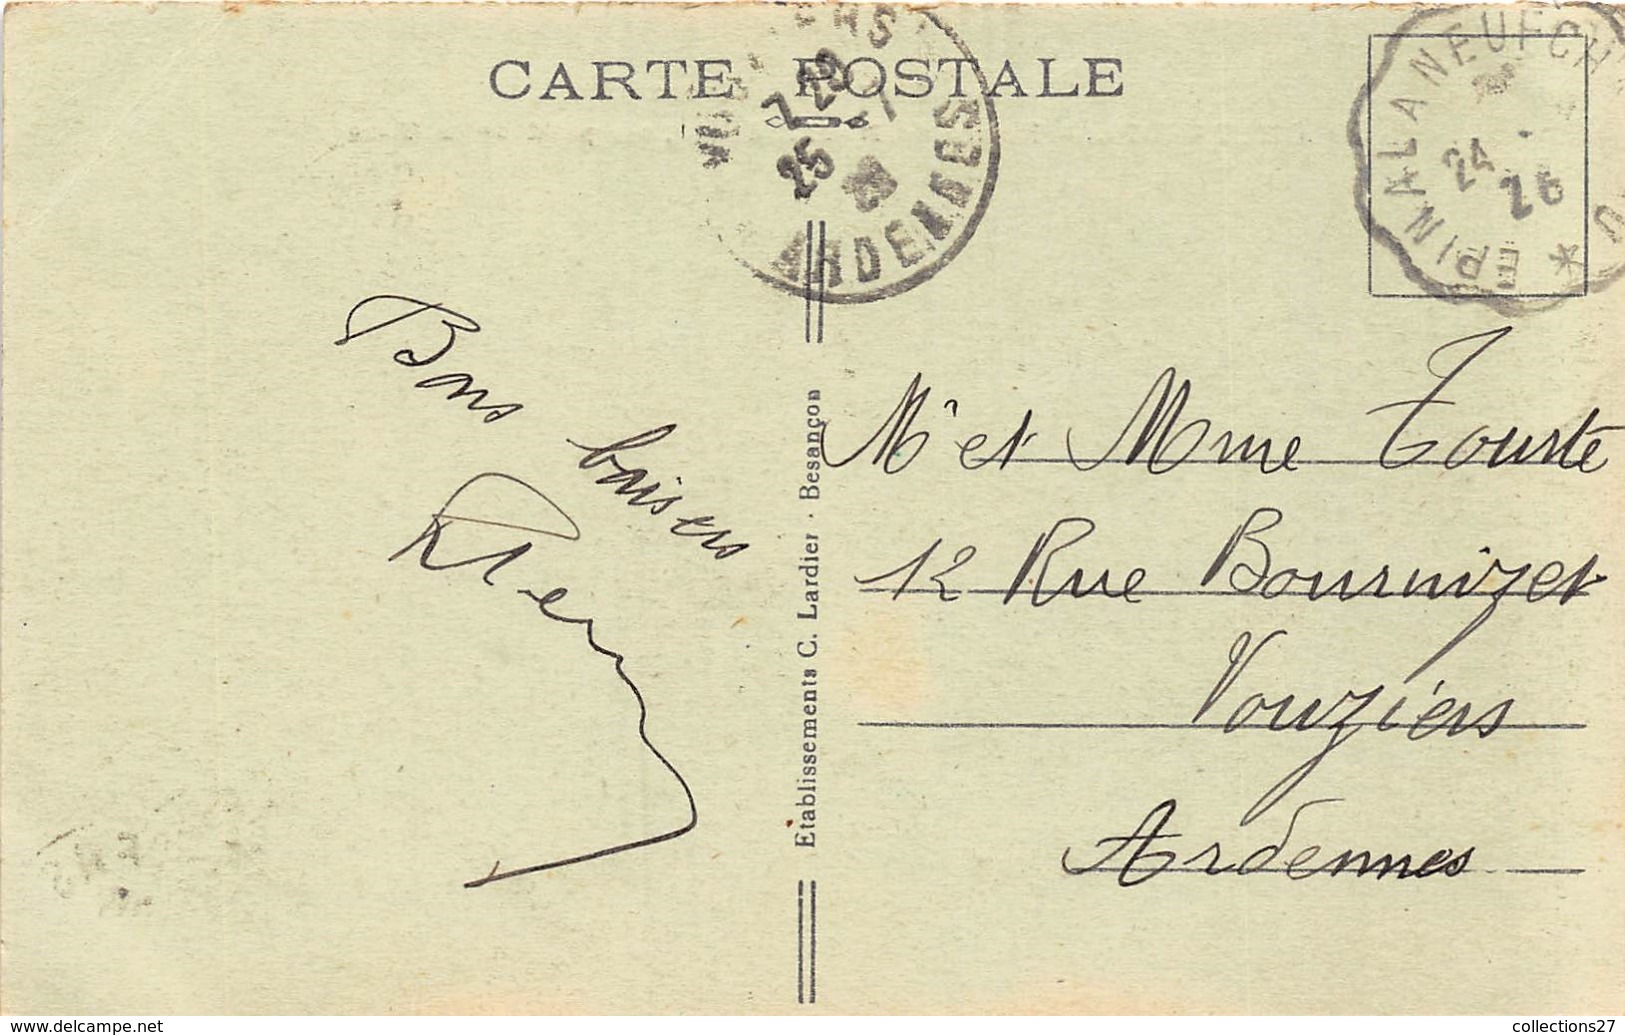 CARTE POSTALE
7 20
25 -1
26
ARDENNES
EPINAL A NEUFCH
24
26
Bons baisers
Etablissements C. Lardier - Besançon
Mr et Mme Tourte
12 Rue Bournizet
Vouziers
Ardennes
www.delcampe.net
collections27